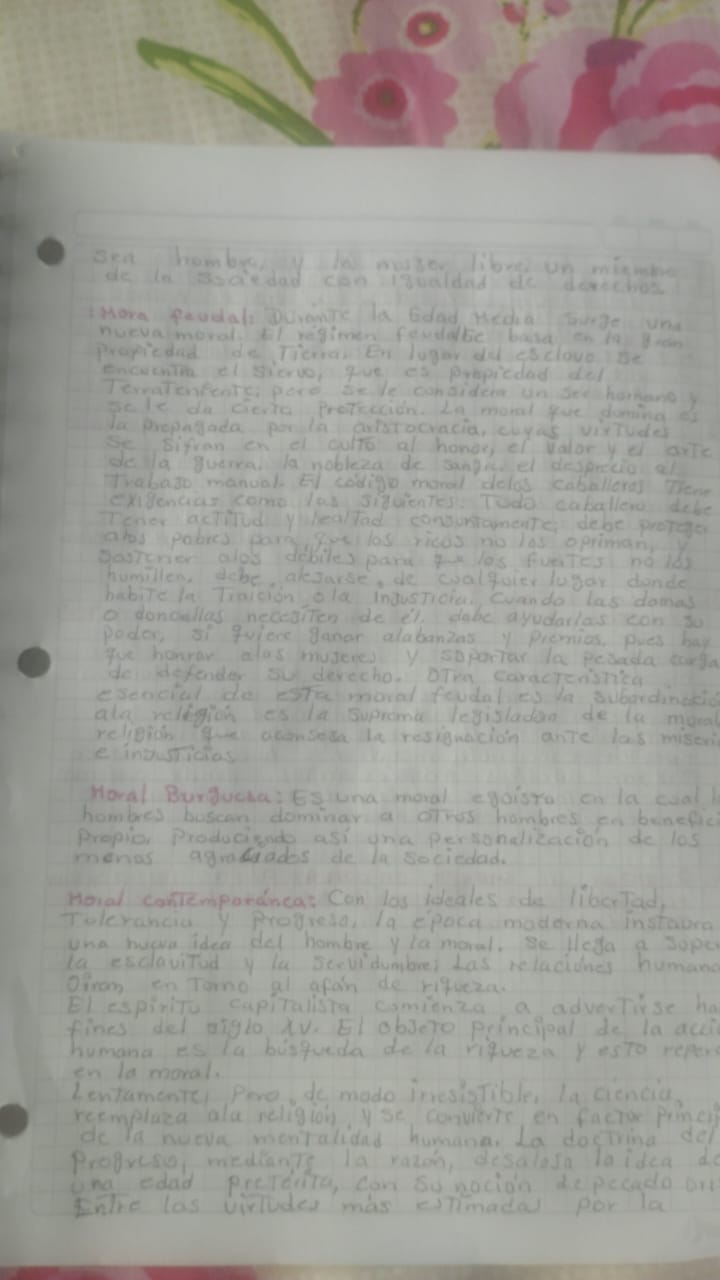 sea hombre, y la mujer libre, un miembro
de la sociedad con igualdad de derechos
:Mora feudal: Durante la Edad Media surge una
nueva moral. El régimen feudal se basa en la gran
propiedad de Tierra. En lugar del esclavo se
encuentra el siervo, que es propiedad del
Terrateniente; pero se le considera un ser humano y
se le da cierta protección. La moral que domina es
la propagada por la aristocracia, cuyas virtudes
se sifran en el culto al honor, el valor y el arte
de la guerra, la nobleza de sangre, el desprecio al
Trabajo manual. El código moral delos caballeros Tiene
exigencias como las siguientes: Todo caballero debe
Tener actitud y lealtad conjuntamente; debe proteger
alos pobres para que los ricos no los opriman, y
sostener alos débiles para que los fuertes no los
humillen. debe, alejarse, de cualquier lugar donde
habite la Traición o la injusticia. Cuando las damas
o doncellas necesiten de él. debe ayudarlas con su
poder, si quiere ganar alabanzas y premios, pues hay
que honrar alas mujeres y soportar la pesada carga
de defender su derecho. Otra característica
esencial de esta moral feudal es la subordinació
ala religión es la suprema legisladora de la moral
religión que aconseja la resignación ante las miseri
e injusticias
Moral Burguesa: Es una moral egoísta en la cual l
hombres buscan dominar a otros hombres en benefici
propio, produciendo así una personalización de los
menos agraciados de la sociedad.
Moral contemporánea: Con los ideales de libertad,
Tolerancia y progreso, la época moderna instaura
una nueva idea del hombre y la moral. Se llega a super
la esclavitud y la servidumbre; las relaciones humana
Giran en torno al afán de riqueza.
El espíritu capitalista comienza a advertirse ha
fines del siglo XV. El objeto principal de la acci
humana es la búsqueda de la riqueza y esto reper
en la moral.
Lentamente, pero, de modo irresistible, la ciencia,
reemplaza ala religión, y se convierte en factor princi
de la nueva mentalidad humana. La doctrina del
Progreso, mediante la razón, desaloja la idea de
una edad pretérita, con su noción de pecado ori
Entre las virtudes más estimadas por la